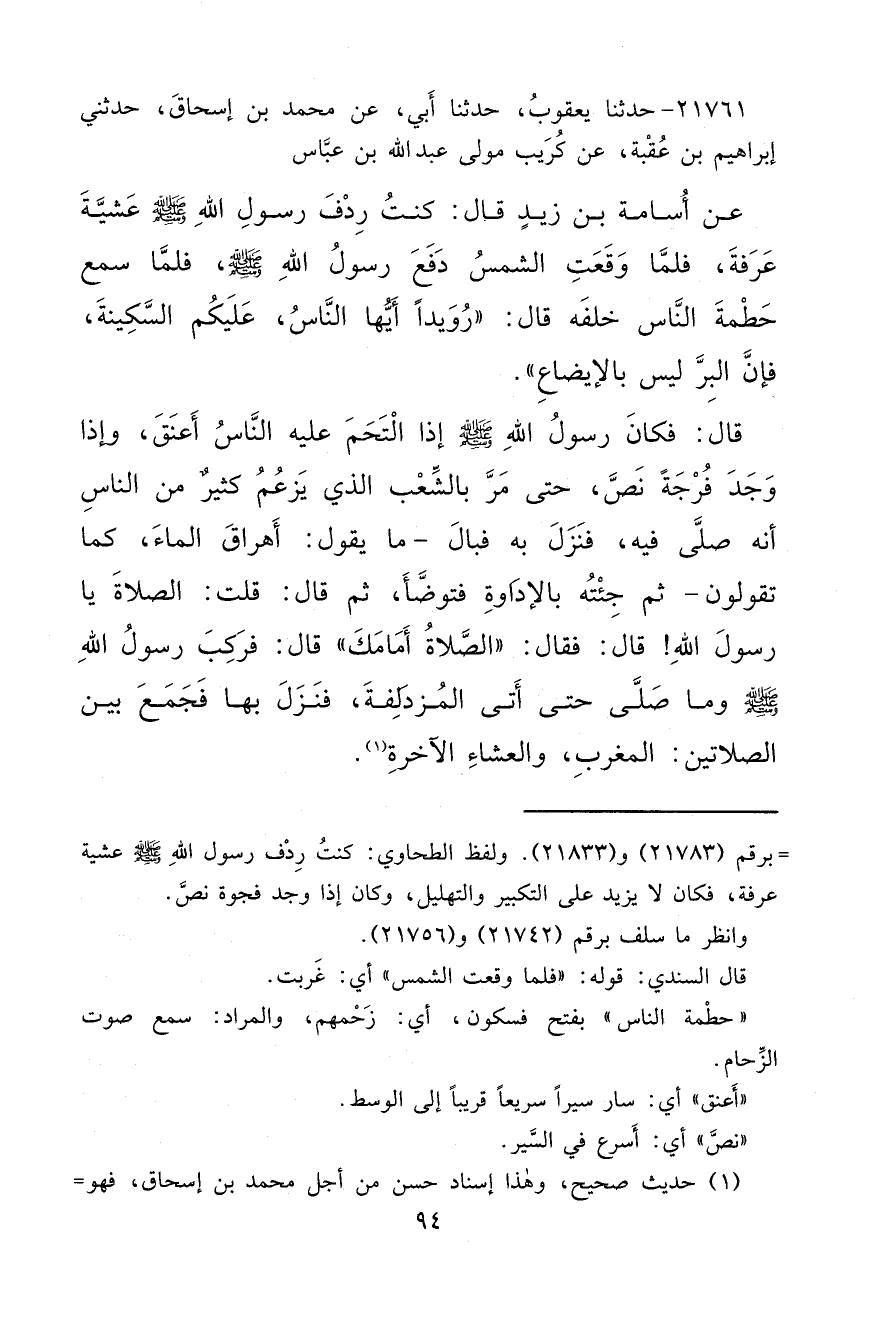 ٢١٧٦١- حدثنا يعقوبُ، حدثنا أَبي، عن محمد بن إسحاقَ، حدثني
إبراهيم بن عُقْبة، عن كُرَيب مولى عبد الله بن عبَّاس
عـن أُسـامـة بـن زيـدٍ قـال: كنـتُ رِدْفَ رسـولِ اللهِ ﷺ عَشيَّـةَ
عَرَفةَ، فلمَّا وَقَعَتِ الشمسُ دَفَعَ رسولُ اللهِ ﷺ، فلمَّا سمع
حَطْمةَ النَّاس خلفَه قال: «رُوَيداً أَيُّها النَّاسُ، عَلَيكُم السَّكِينةَ،
فإنَّ البِرَّ ليس بالإيضاعِ».
قال: فكانَ رسولُ اللهِ ﷺ إذا الْتَحَمَ عليه النَّاسُ أَعنَقَ، وإذا
وَجَدَ فُرْجَةً نَصَّ، حتى مَرَّ بالشِّعْب الذي يَزعُمُ كثيرٌ من الناسِ
أنه صلَّى فيه، فنَزَلَ به فبالَ - ما يقول: أَهراقَ الماءَ، كما
تقولون - ثم جِئْتُه بالإدَاوةِ فتوضَّأَ، ثم قال: قلت: الصلاةَ يا
رسولَ اللهِ! قال: فقال: «الصَّلاةُ أَمَامَكَ» قال: فرَكِبَ رسولُ اللهِ
ﷺ ومـا صَلَّـى حتـى أَتـى المُـزدلِفـةَ، فنَـزَلَ بهـا فَجَمَـعَ بيـن
الصلاتين: المغربِ، والعشاءِ الآخرةِ(١).
= برقم (٢١٧٨٣) و(٢١٨٣٣). ولفظ الطحاوي: كنتُ رِدْف رسول اللهِ ﷺ عشية
عرفة، فكان لا يزيد على التكبير والتهليل، وكان إذا وجد فجوة نصَّ.
وانظر ما سلف برقم (٢١٧٤٢) و(٢١٧٥٦).
قال السندي: قوله: «فلما وقعت الشمس» أي: غَربت.
«حطْمة الناس» بفتح فسكون، أي: زَحْمهم، والمراد: سمع صوت
الزِّحام.
«أَعنق» أي: سار سيراً سريعاً قريباً إلى الوسط.
«نصَّ» أي: أَسرع في السَّير.
(١) حديث صحيح، وهٰذا إسناد حسن من أجل محمد بن إسحاق، فهو=
٩٤